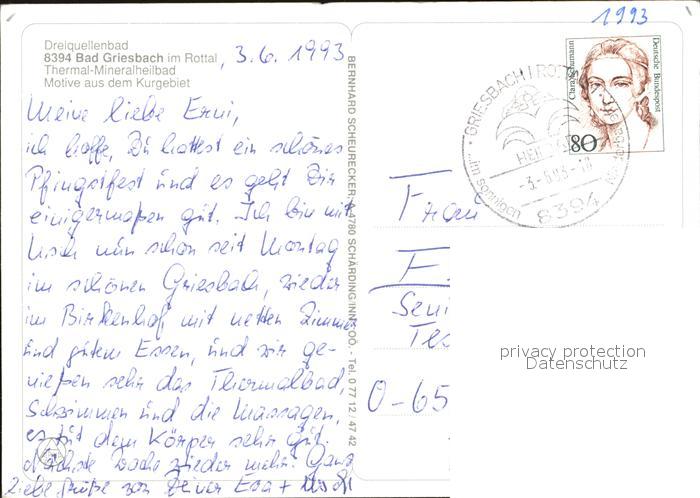 1993
Dreiquellenbad
8394 Bad Griesbach im Rottal, 3.6.1993
Thermal-Mineralheilbad
Motive aus dem Kurgebiet
Meine liebe Erni,
ich hoffe, Du hattest ein schönes
Pfingstfest und es geht Dir
einigermaßen gut. Ich bin mit
Usch nun schon seit Montag
im schönen Griesbach, wieder
im Birkenhof, mit netten Zimmer
und gutem Essen, und wir ge-
nießen sehr das Thermalbad,
Schwimmen und die Massagen,
es tut dem Körper sehr gut.
Nächste Woche wieder mehr. Ganz
liebe Grüße von Deiner Eva + Uschi
BERNHARD SCHEURECKER A-4780 SCHÄRDING/INN, OÖ. - Tel. 0 77 12 / 47 42
Clara Schumann
Deutsche Bundespost
80
GRIESBACH I ROTTAL
-3.-6.93-18
8394
Frau
F
Seni
O-65
privacy protection
Datenschutz